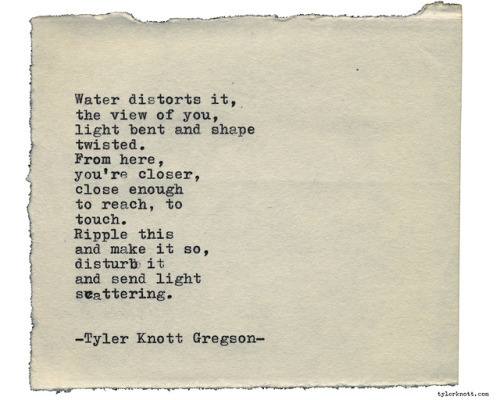 Water distorts it,
the view of you,
light bent and shape
twisted.
From here,
you're closer,
close enough
to reach, to
touch.
Ripple this
and make it so,
disturb it
and send light
scattering.
-Tyler Knott Gregson-
tylerknott.com